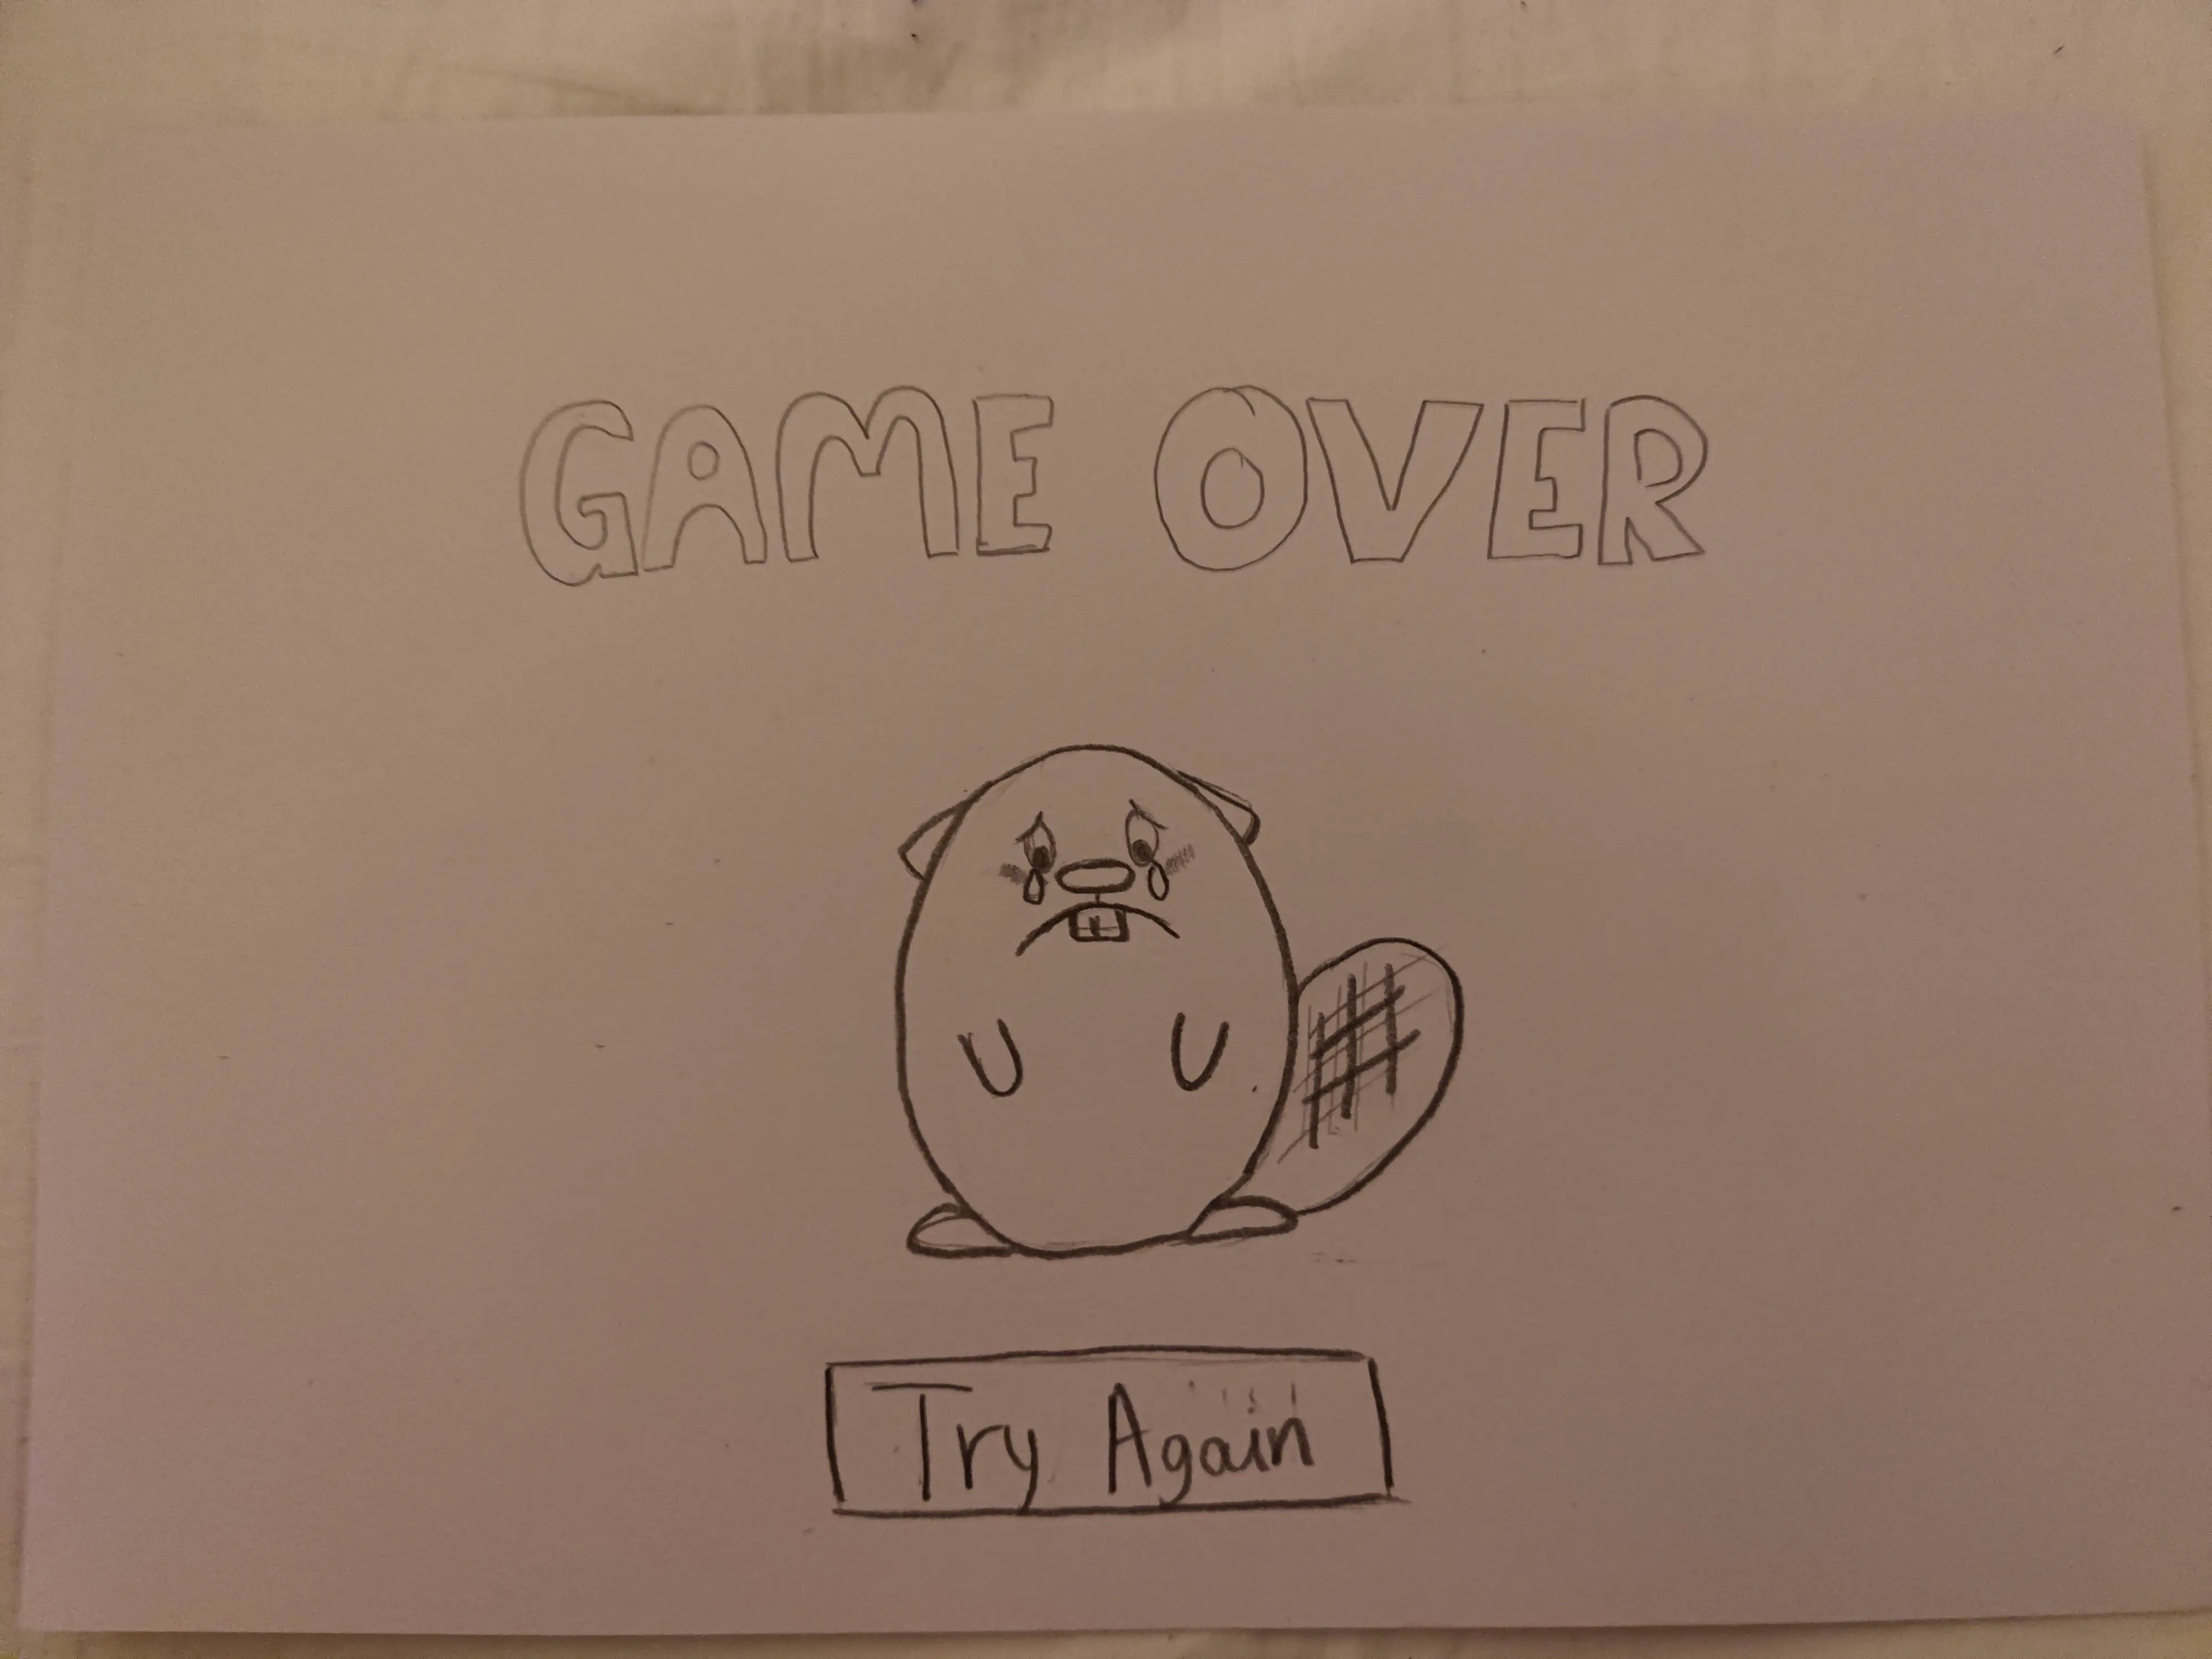 GAME OVER
Try Again